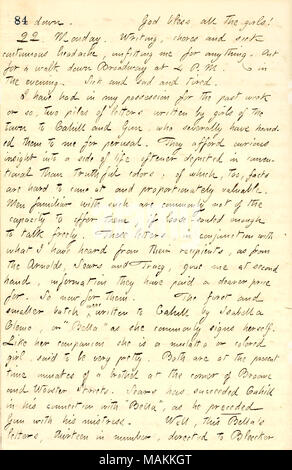 84 down. God bless all the girls!
22. Monday. Writing, chores and sick
continuous headache, unfitting me for anything. Out
for a walk down Broadway at 2 P.M. in
the evening. Sick and sad and tired.
I have had in my possession for the past week
or so, two piles of letters written by girls of the
town to Cahill and Gun, who severally have hand-
ed them to me for perusal. They afford curious
insight into a side of life oftener depicted in conven-
tional than truthful colors; of which, too, facts
are hard to come at and proportionately valuable.
Men familiar with such are commonly not of the
capacity to offer them, if loose enough
to talk freely. These letters, in conjunction with
what I have heard from their recipients, as from
the Arnolds, Sears and Tracy, gave me at second
hand, information they have paid a dearer price
for. So now for them. The first and
smaller batch were written to Cahill by Isabella
or "Bella" as she commonly signs herself.
Like her companion she is a mulatto or colored
girl, said to be very pretty. Both are at the present
time inmates of a brothel at the corner of Broome
and Wooster Streets. Sears has succeeded Cahill
in his connection with "Bella", as he preceded
Gun with his mistress. Well, this Bella's
letters, thirteen in number, directed to Bleecker
alamy
Image ID: MAKKGT
www.alamy.com